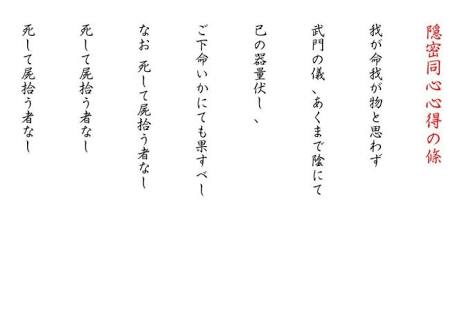 隠密同心心得の條
我が命我が物と思わず
武門の儀、あくまで陰にて
己の器量伏し、
ご下命いかにても果すべし
なお 死して屍拾う者なし
死して屍拾う者なし
死して屍拾う者なし